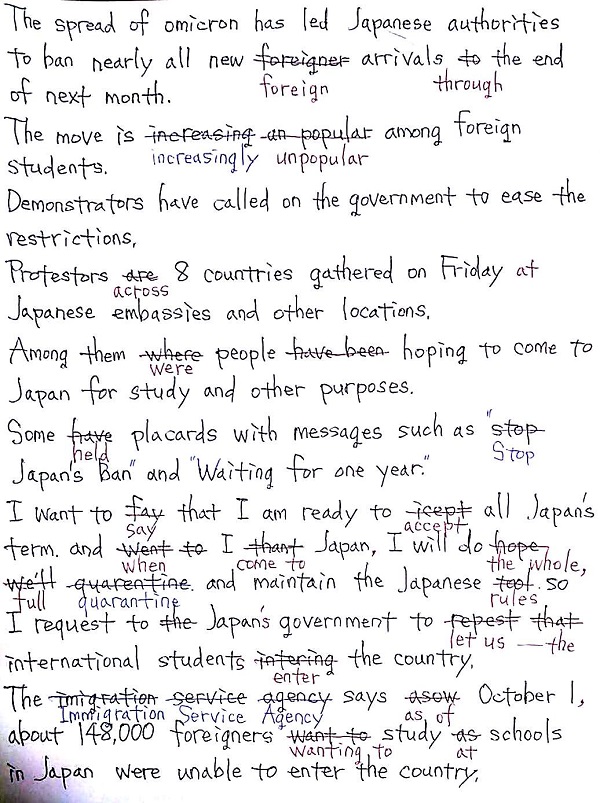 The spread of omicron has led Japanese authorities
to ban nearly all new foreigner arrivals to the end
foreign through
of next month.
The move is increasing an popular among foreign
increasingly unpopular
students.
Demonstrators have called on the government to ease the
restrictions,
Protestors are 8 countries gathered on Friday at
across
Japanese embassies and other locations.
Among them where people have been hoping to come to
were
Japan for study and other purposes.
Some have placards with messages such as "stop
held Stop
Japan's Ban" and "Waiting for one year."
I want to fay that I am ready to icept all Japan's
say accept
term. and went to I thant Japan, I will do hope
when come to the whole,
we'll quarentine. and maintain the Japanese toot. so
full quarantine rules
I request to the Japan's government to repest that
let us the
international students intering the country.
enter
The imigration service agency says asow October 1,
Immigration Service Agency as of
about 148,000 foreigners want to study as schools
wanting to at
in Japan were unable to enter the country,